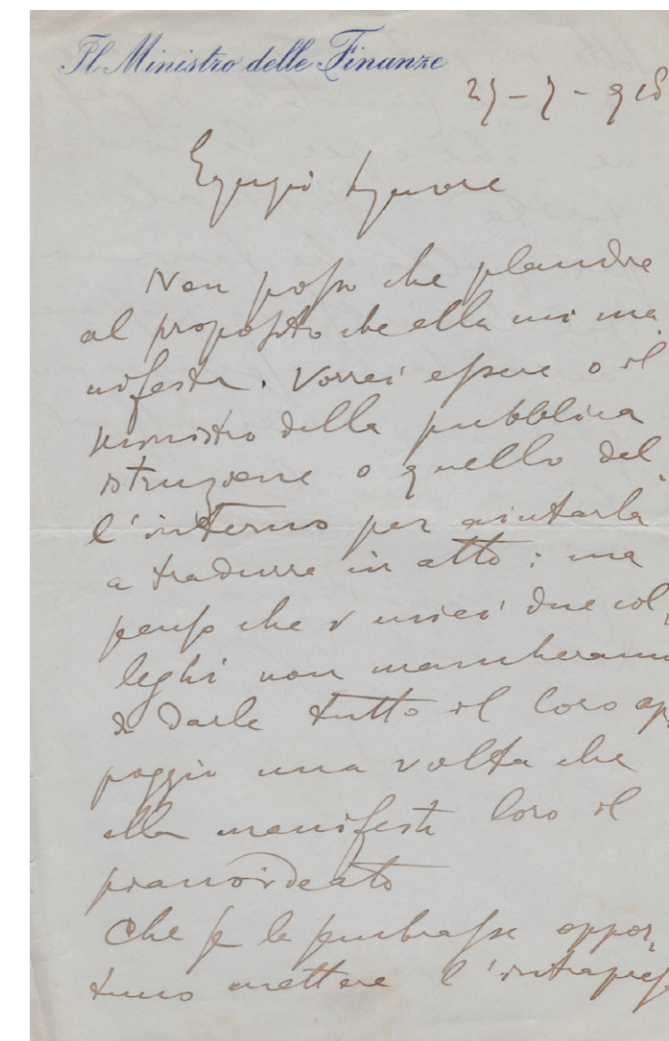 Il Ministro delle Finanze
Egregio Signore
Non posso che plaudire
al proposito che ella mi ma
nifesta. Vorrei essere o il
ministro della pubblica
istruzione o quello del
l'interno per aiutarla
a tradurre in atto: ma
penso che i miei due col
leghi non mancheranno
di darle tutto il loro ap
poggio una volta che
ella manifesti loro il
piano ideato
Che se le sembrasse oppor
tuno mettere l'intrapres